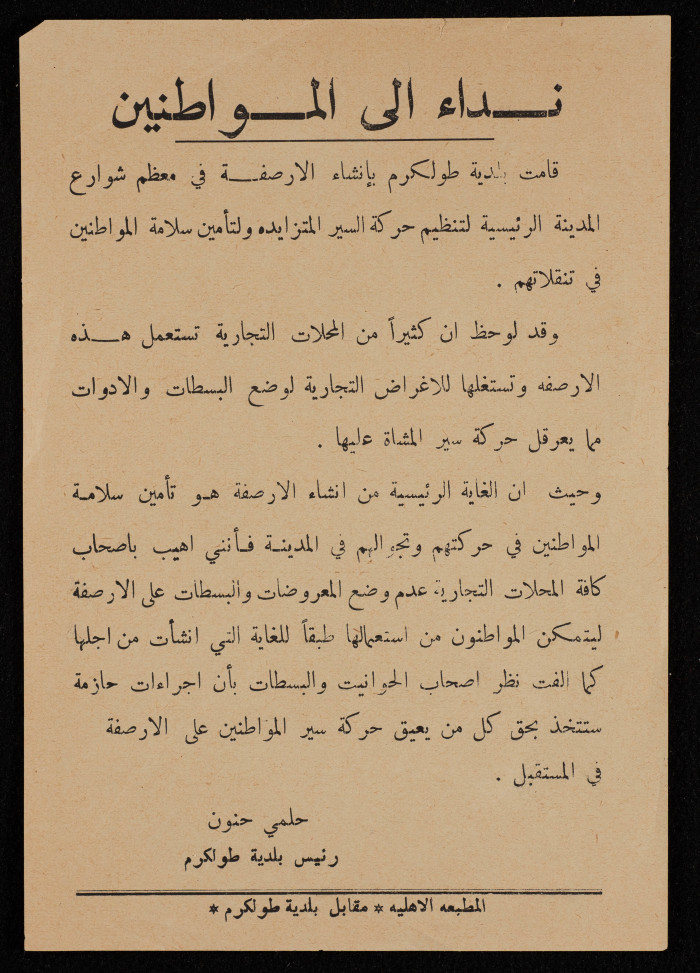 نـــداء الى المـــواطنين
قامت بلدية طولكرم بإنشاء الارصفـــة في معظم شوارع
المدينة الرئيسية لتنظيم حركة السير المتزايده ولتأمين سلامة المواطنين
في تنقلاتهم .
وقد لوحظ ان كثيراً من المحلات التجارية تستعمل هـــذه
الارصفه وتستغلها للاغراض التجارية لوضع البسطات والادوات
مما يعرقل حركة سير المشاة عليها .
وحيث ان الغاية الرئيسية من انشاء الارصفة هـو تأمين سلامـة
المواطنين في حركتهم وتجوالهم في المدينـة فـأنني اهيب باصحاب
كافة المحلات التجارية عدم وضع المعروضات والبسطات على الارصفة
ليتمكن المواطنون من استعمالها طبقاً للغاية التي انشأت من اجلها
كما الفت نظر اصحاب الحوانيت والبسطات بأن اجراءات حازمة
ستتخذ بحق كل من يعيق حركة سير المواطنين على الارصفة
في المستقبل .
حلمي حنون
رئيس بلدية طولكرم
المطبعه الاهليه * مقابل بلدية طولكرم *